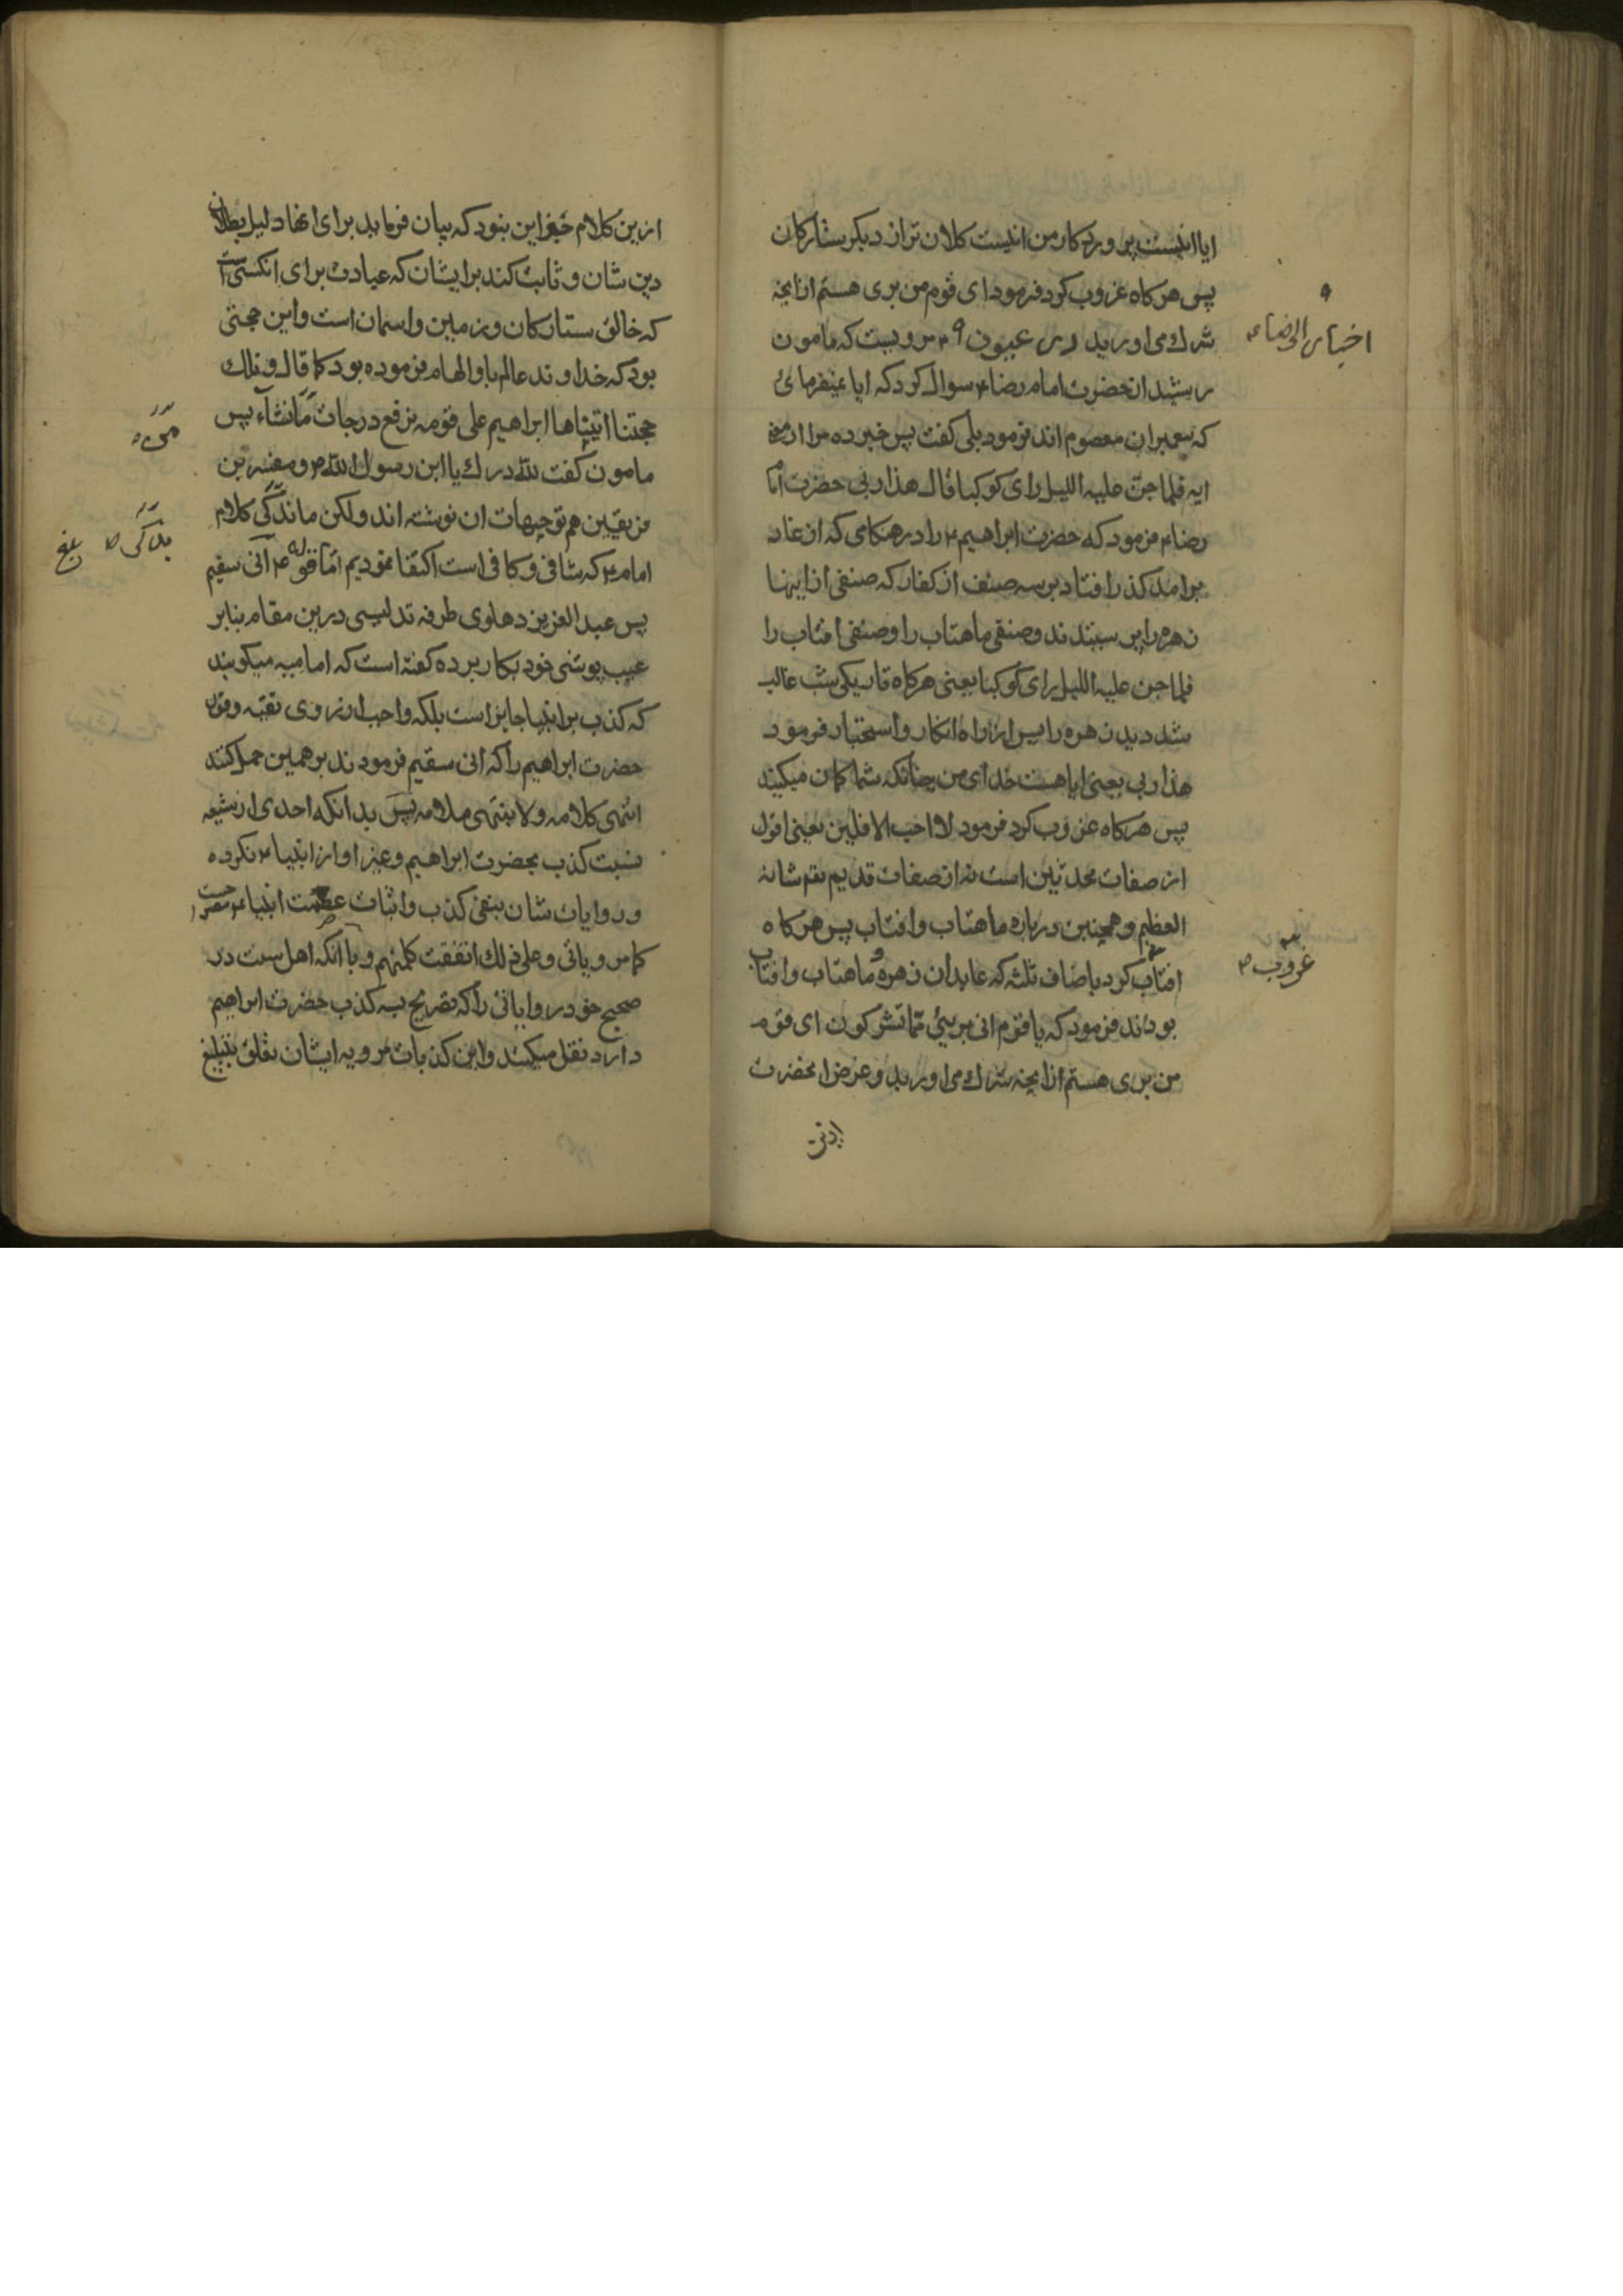 ایا اینست پروردکار من اینست کلان تر از دیکر ستارکان
پس هرکاه غروب کرد فرمود ای قوم من بری هستم از انچه
شرك می اورید در عیون مرویست که مامون
رشید از حضرت امام رضاء سوال کرد که ایا نمیفرمائ
که پیغمبران معصوم اند فرمود بلی کفت پس خبر ده مرا از
ایه فلما جن علیه اللیل رای کوکبا قال هذا ربی حضرت امام
رضاء فرمود که حضرت ابراهیم ء را در هنکامی که از غار
برامد کذر افتاد بر سه صنف از کفار که صنفی از اینها
زهره را می پرستیدند و صنفی ماهتاب را و صنفی افتاب را
فلما جن علیه اللیل رای کوکبا یعنی هرکاه تاریکی شب غالب
شد دید زهره را پس از راه انکار و استخبار فرمود
هذا ربی یعنی ایا هست خدای من چنانکه شما کمان میکنید
پس هرکاه غروب کرد فرمود لا احب الافلین یعنی افول
از صفات محدثین است نه از صفات قدیم تقم شانه
العظیم و همچنین درباره ماهتاب و افتاب پس هرکاه
افتاب کرد باصناف ثلثه که عابدان زهره و ماهتاب و افتاب
بودند فرمود که یا قوم انی بریئ مما تشرکون ای قوم
من بری هستم از انچه شرك می اورید و غرض انحضرت
ازین
اخبار الرضاء
غروب
ازین کلام خیر این بنود که بیان فرماید برای انها دلیل بطلان
دین شان و ثابت کند برایشان که عبادت برای انکسی است
که خالق ستارکان و زمین و اسمان است و این حجتی
بود که خداوند عالم باو الهام فرموده بود کما قال و تلك
حجتنا اتیناها ابراهیم علی قومه نرفع درجات من نشآء پس
مامون کفت لله درك یا ابن رسول الله و مفسرین
فریقین هم توجیهات ان نوشته اند ولکن ما کلام
امام ء که شافی و کافی است اکتفا نمودیم اما قوله ء انی سقیم
پس عبد العزیز دهلوی طرفه تدلیسی درین مقام بنابر
عیب پوشی خود بکار برده کفته است که امامیه میکویند
که کذب بر انبیا جایز است بلکه واجب از روی تقیه وقول
حضرت ابراهیم را که انی سقیم فرمودند بر همین حمل کنند
انتهی کلامه ولا ینتهی ملامه پس بدانکه احدی از شیعه
نسبت کذب بحضرت ابراهیم و غیر او از انبیاء نکرده
و روایات شان بنفی کذب و اثبات عصمت انبیاء
کما مر ویاتی و علی ذلك اتفقت کلمتهم و با انکه اهل سنت در
صحیح خود روایاتی را که تصریح به کذب حضرت ابراهیم
دارد نقل میکنند و این کذبات مرویه ایشان تعلق بتبلیغ